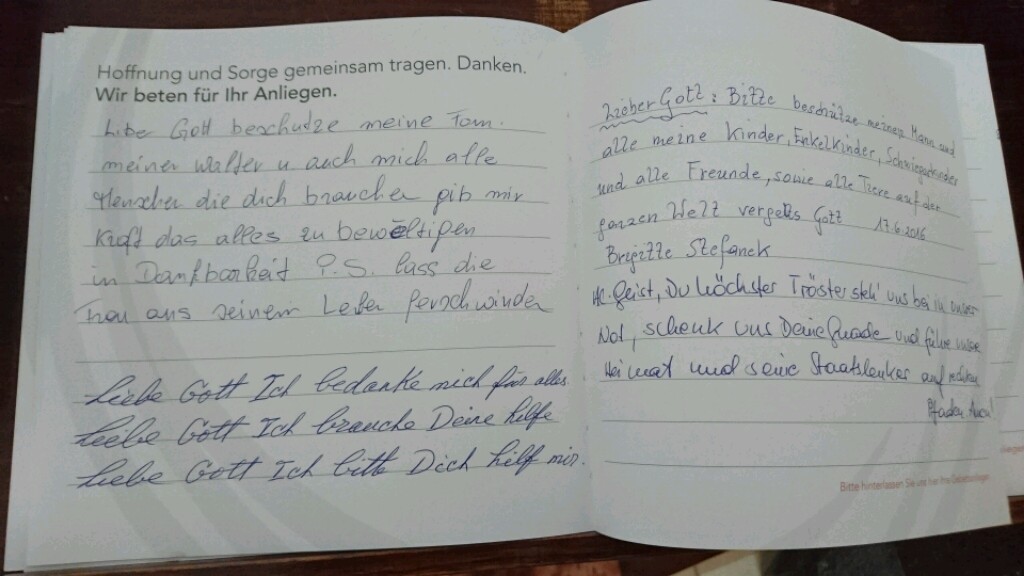 Hoffnung und Sorge gemeinsam tragen. Danken.
Wir beten für Ihr Anliegen.
Libe Gott beschutze meine Fam.
meinen Walter u auch mich alle
Menschen die dich brauchen gib mir
Kraft das alles zu bewältigen
in Dankbarkeit P.S. lass die
Frau aus seinem Leben ferschwinden
Liebe Gott Ich bedanke mich für alles
Liebe Gott Ich brauche Deine hilfe
Liebe Gott Ich bitte Dich hilf mir.
Lieber Gott: Bitte beschütze meinen Mann und
alle meine Kinder, Enkelkinder, Schwiegerkinder
und alle Freunde, sowie alle Tiere auf der
ganzen Welt vergelts Gott 17.6.2016
Brigitte Stefanek
Hl. Geist, Du höchster Tröster steh' uns bei in unser
Not, schenk uns Deine Gnade und führe unsre
Heimat und seine Staatslenker auf
Pfaden Amen!
Bitte hinterlassen Sie uns hier Ihre Gebetsanliegen